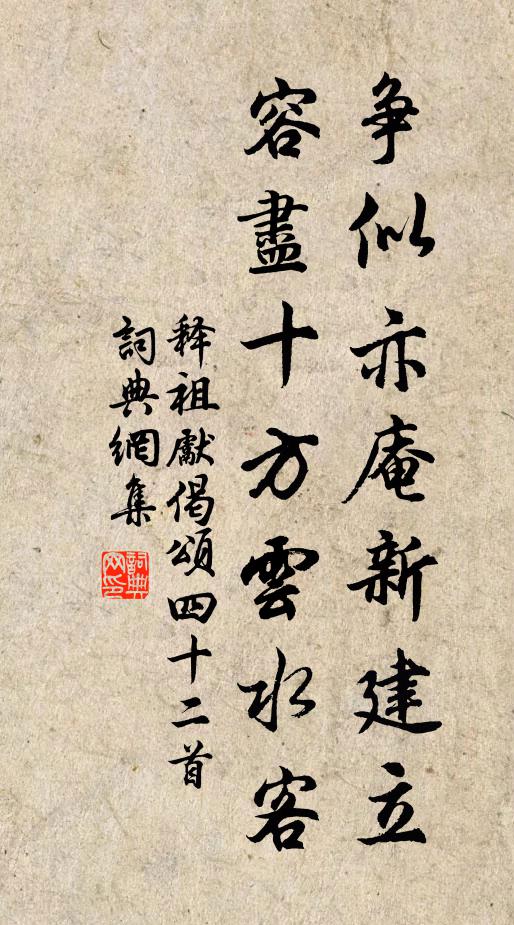 争似亦庵新建立
容盡十方雲水客
释祖獻偈頌四十二首
詞典網集
詞典
网印